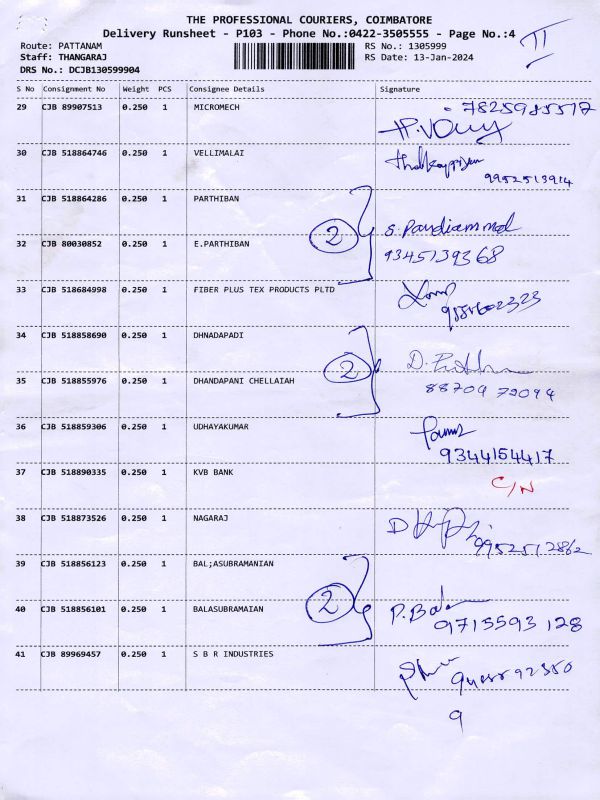 THE PROFESSIONAL COURIERS, COIMBATORE
Delivery Runsheet - P103 - Phone No.:0422-3505555 - Page No.:4
Route: PATTANAM RS No.: 1305999
Staff: THANGARAJ RS Date: 13-Jan-2024
DRS No.: DCJB130599904
S No Consignment No Weight PCS Consignee Details Signature
29 CJB 89907513 0.250 1 MICROMECH 7825985517
30 CJB 518864746 0.250 1 VELLIMALAI
9952513914
31 CJB 518864286 0.250 1 PARTHIBAN
2 S. Pandiammal
32 CJB 80030852 0.250 1 E.PARTHIBAN 9345139368
33 CJB 518684998 0.250 1 FIBER PLUS TEX PRODUCTS PLTD
34 CJB 518858690 0.250 1 DHNADAPADI
2
35 CJB 518855976 0.250 1 DHANDAPANI CHELLAIAH 88709 72094
36 CJB 518859306 0.250 1 UDHAYAKUMAR
9344154417
37 CJB 518890335 0.250 1 KVB BANK C/N
38 CJB 518873526 0.250 1 NAGARAJ
9952512862
39 CJB 518856123 0.250 1 BAL;ASUBRAMANIAN
2
40 CJB 518856101 0.250 1 BALASUBRAMAIAN P. Bala
9715593128
41 CJB 89969457 0.250 1 S B R INDUSTRIES
9